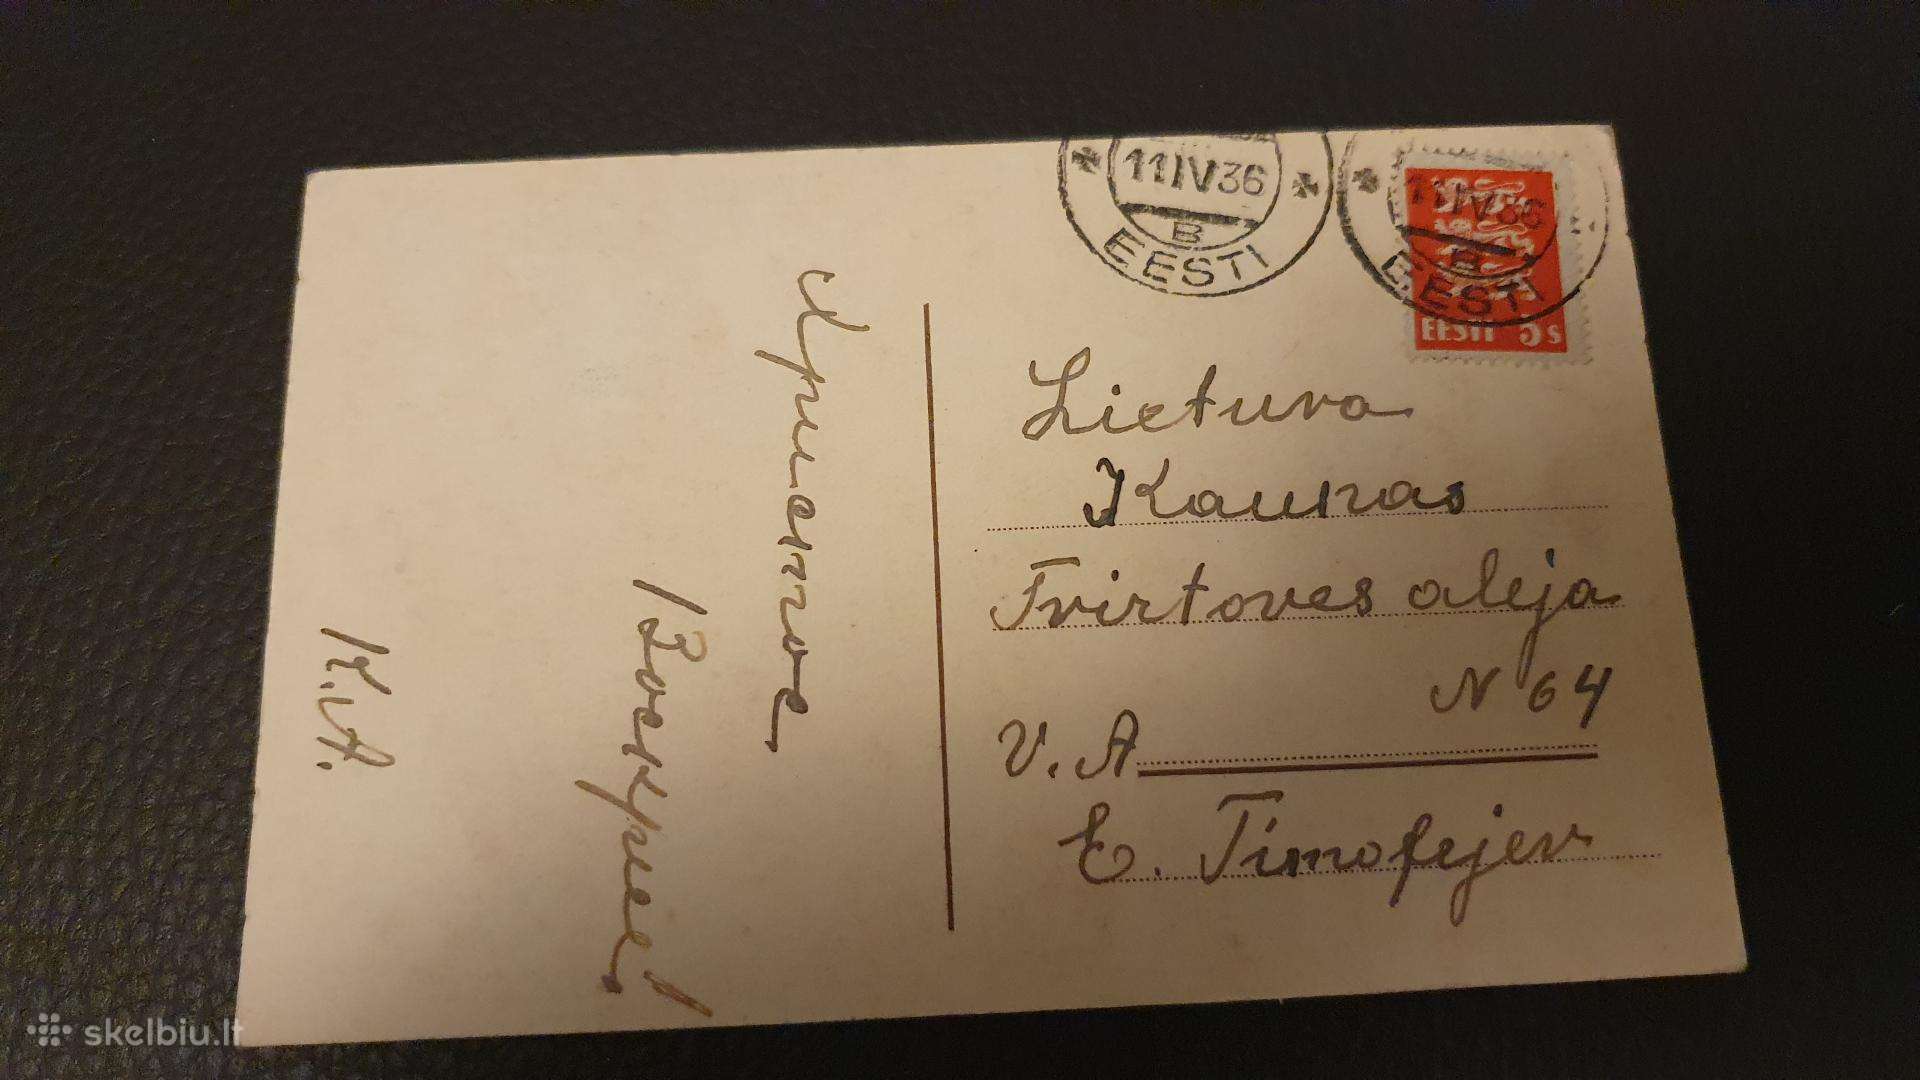 11 IV 36
B
EESTI
11 IV 36
B
EESTI
EESTI 5 s
Lietuva
Kaunas
Tvirtoves aleja
N 64
V. A
E. Timofejev
Христос
Воскрес!
К.А.
skelbiu.lt